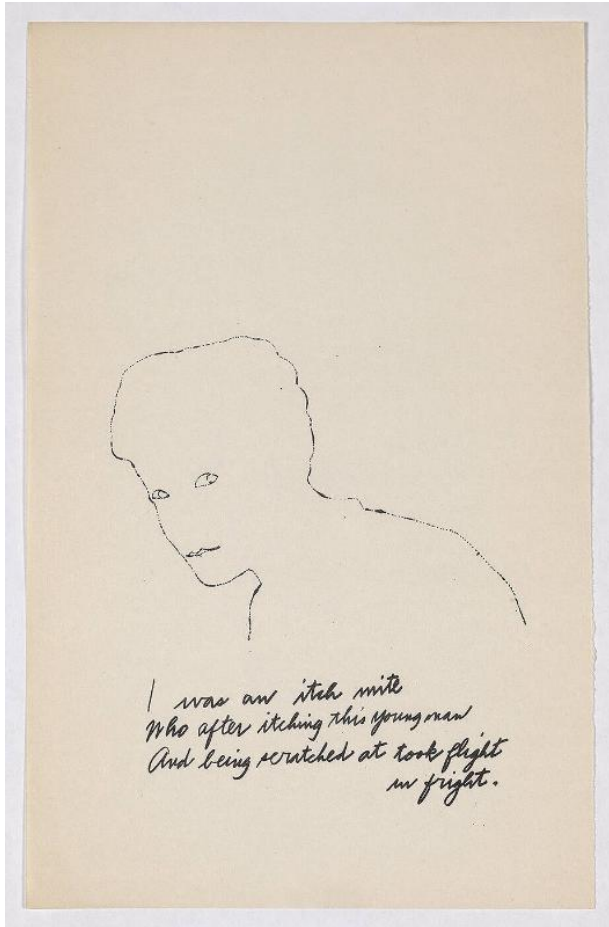 I was an itch mite
Who after itching this young man
And being scratched at took flight
in fright.